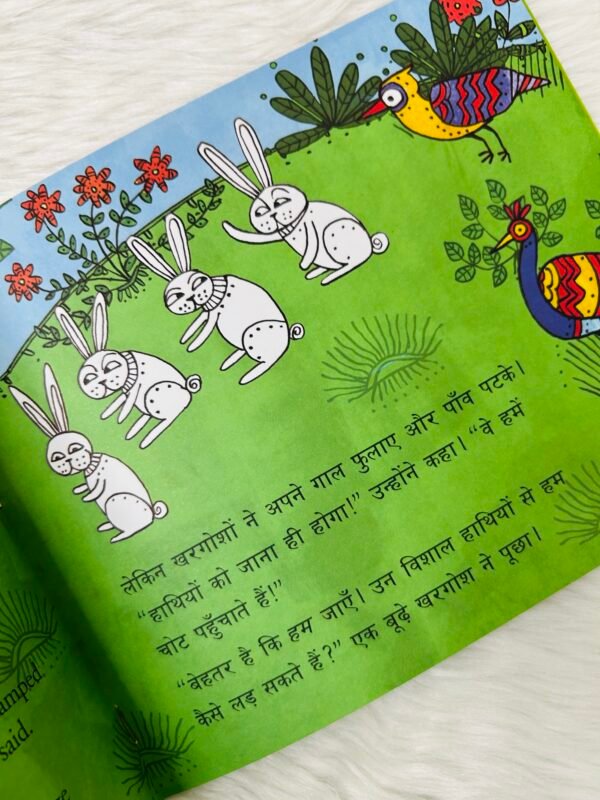 लेकिन खरगोशों ने अपने गाल फुलाए और पाँव पटके।
“हाथियों को जाना ही होगा!” उन्होंने कहा। “वे हमें
चोट पहुँचाते हैं!”
“बेहतर है कि हम जाएँ। उन विशाल हाथियों से हम
कैसे लड़ सकते हैं?” एक बूढ़े खरगोश ने पूछा।
amped
said.